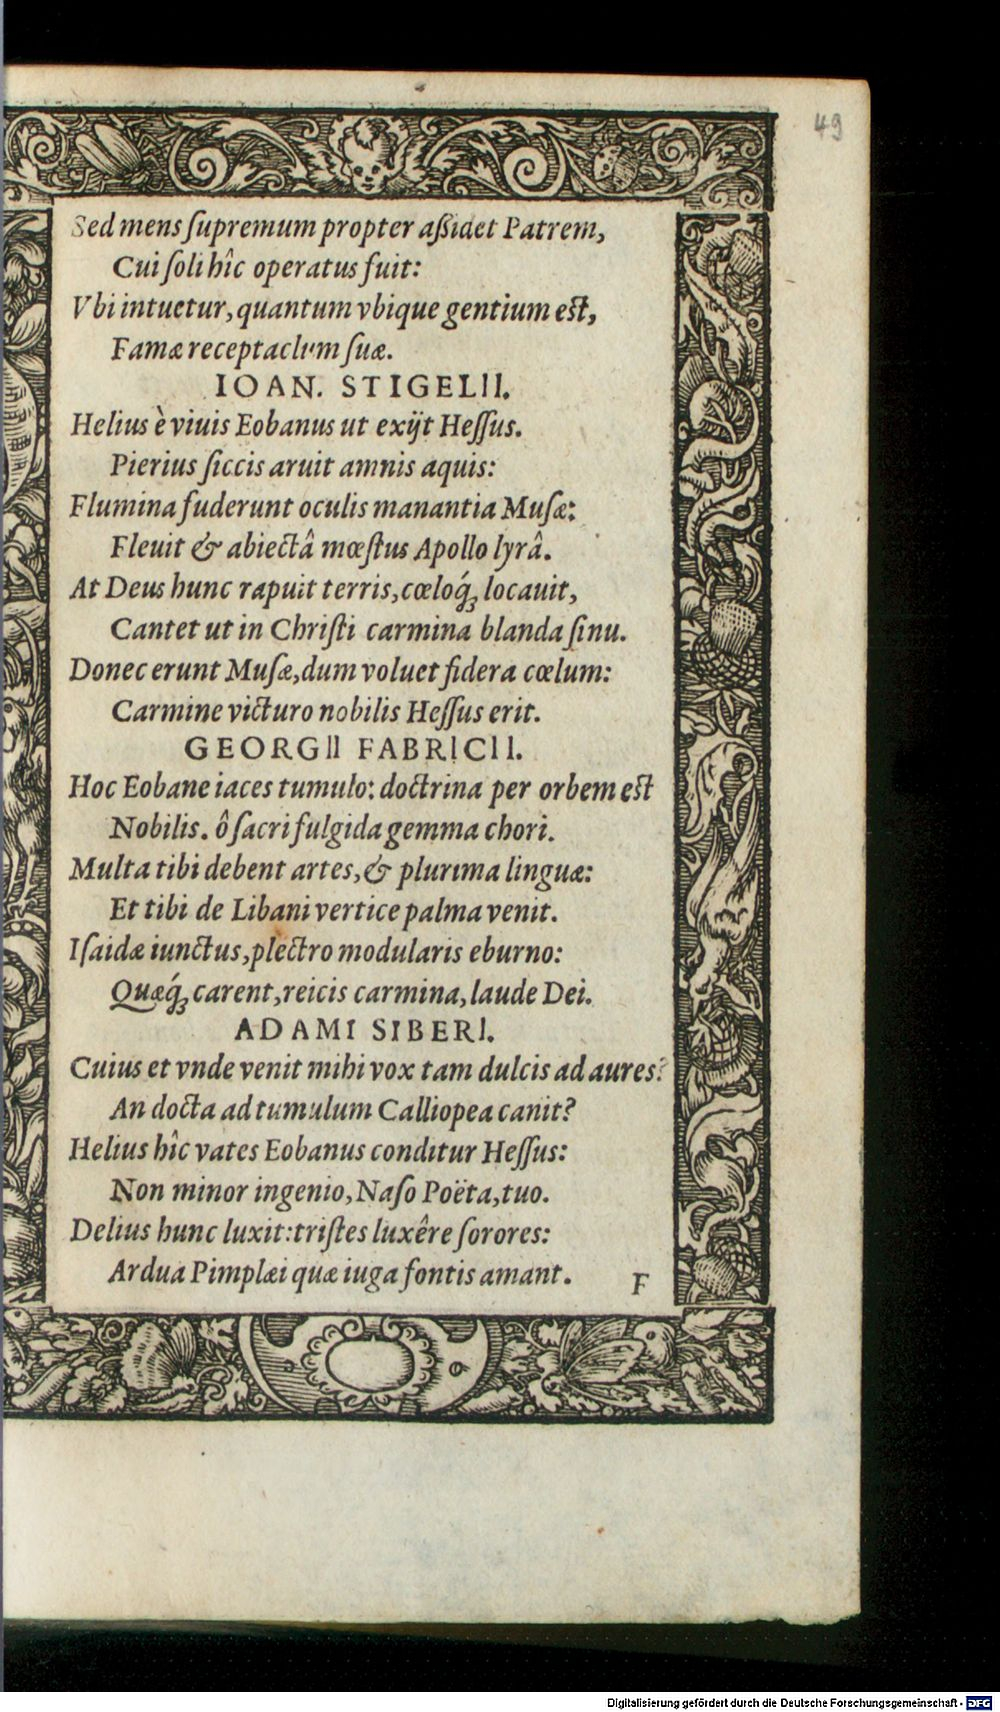 49
Sed mens ſupremum propter aßidet Patrem,
Cui ſoli hîc operatus fuit:
Vbi intuetur, quantum vbique gentium est,
Famæ receptaclum ſuæ.
IOAN. STIGELII.
Helius è viuis Eobanus ut exijt Heſſus.
Pierius ſiccis aruit amnis aquis:
Flumina fuderunt oculis manantia Muſæ:
Fleuit & abiectâ mœſtus Apollo lyrâ.
At Deus hunc rapuit terris, cœloq́ꝫ locauit,
Cantet ut in Chriſti carmina blanda ſinu.
Donec erunt Muſæ, dum voluet ſidera cœlum:
Carmine victuro nobilis Heſſus erit.
GEORGII FABRICII.
Hoc Eobane iaces tumulo: doctrina per orbem est
Nobilis. ô ſacri fulgida gemma chori.
Multa tibi debent artes, & plurima linguæ:
Et tibi de Libani vertice palma venit.
Iſaidæ iunctus, plectro modularis eburno:
Quæq́ꝫ carent, reicis carmina, laude Dei.
ADAMI SIBERI.
Cuius et vnde venit mihi vox tam dulcis ad aures?
An docta ad tumulum Calliopea canit?
Helius hîc vates Eobanus conditur Heſſus:
Non minor ingenio, Naſo Poëta, tuo.
Delius hunc luxit: triſtes luxêre ſorores:
Ardua Pimplæi quæ iuga fontis amant.
F
Digitalisierung gefördert durch die Deutsche Forschungsgemeinschaft - DFG